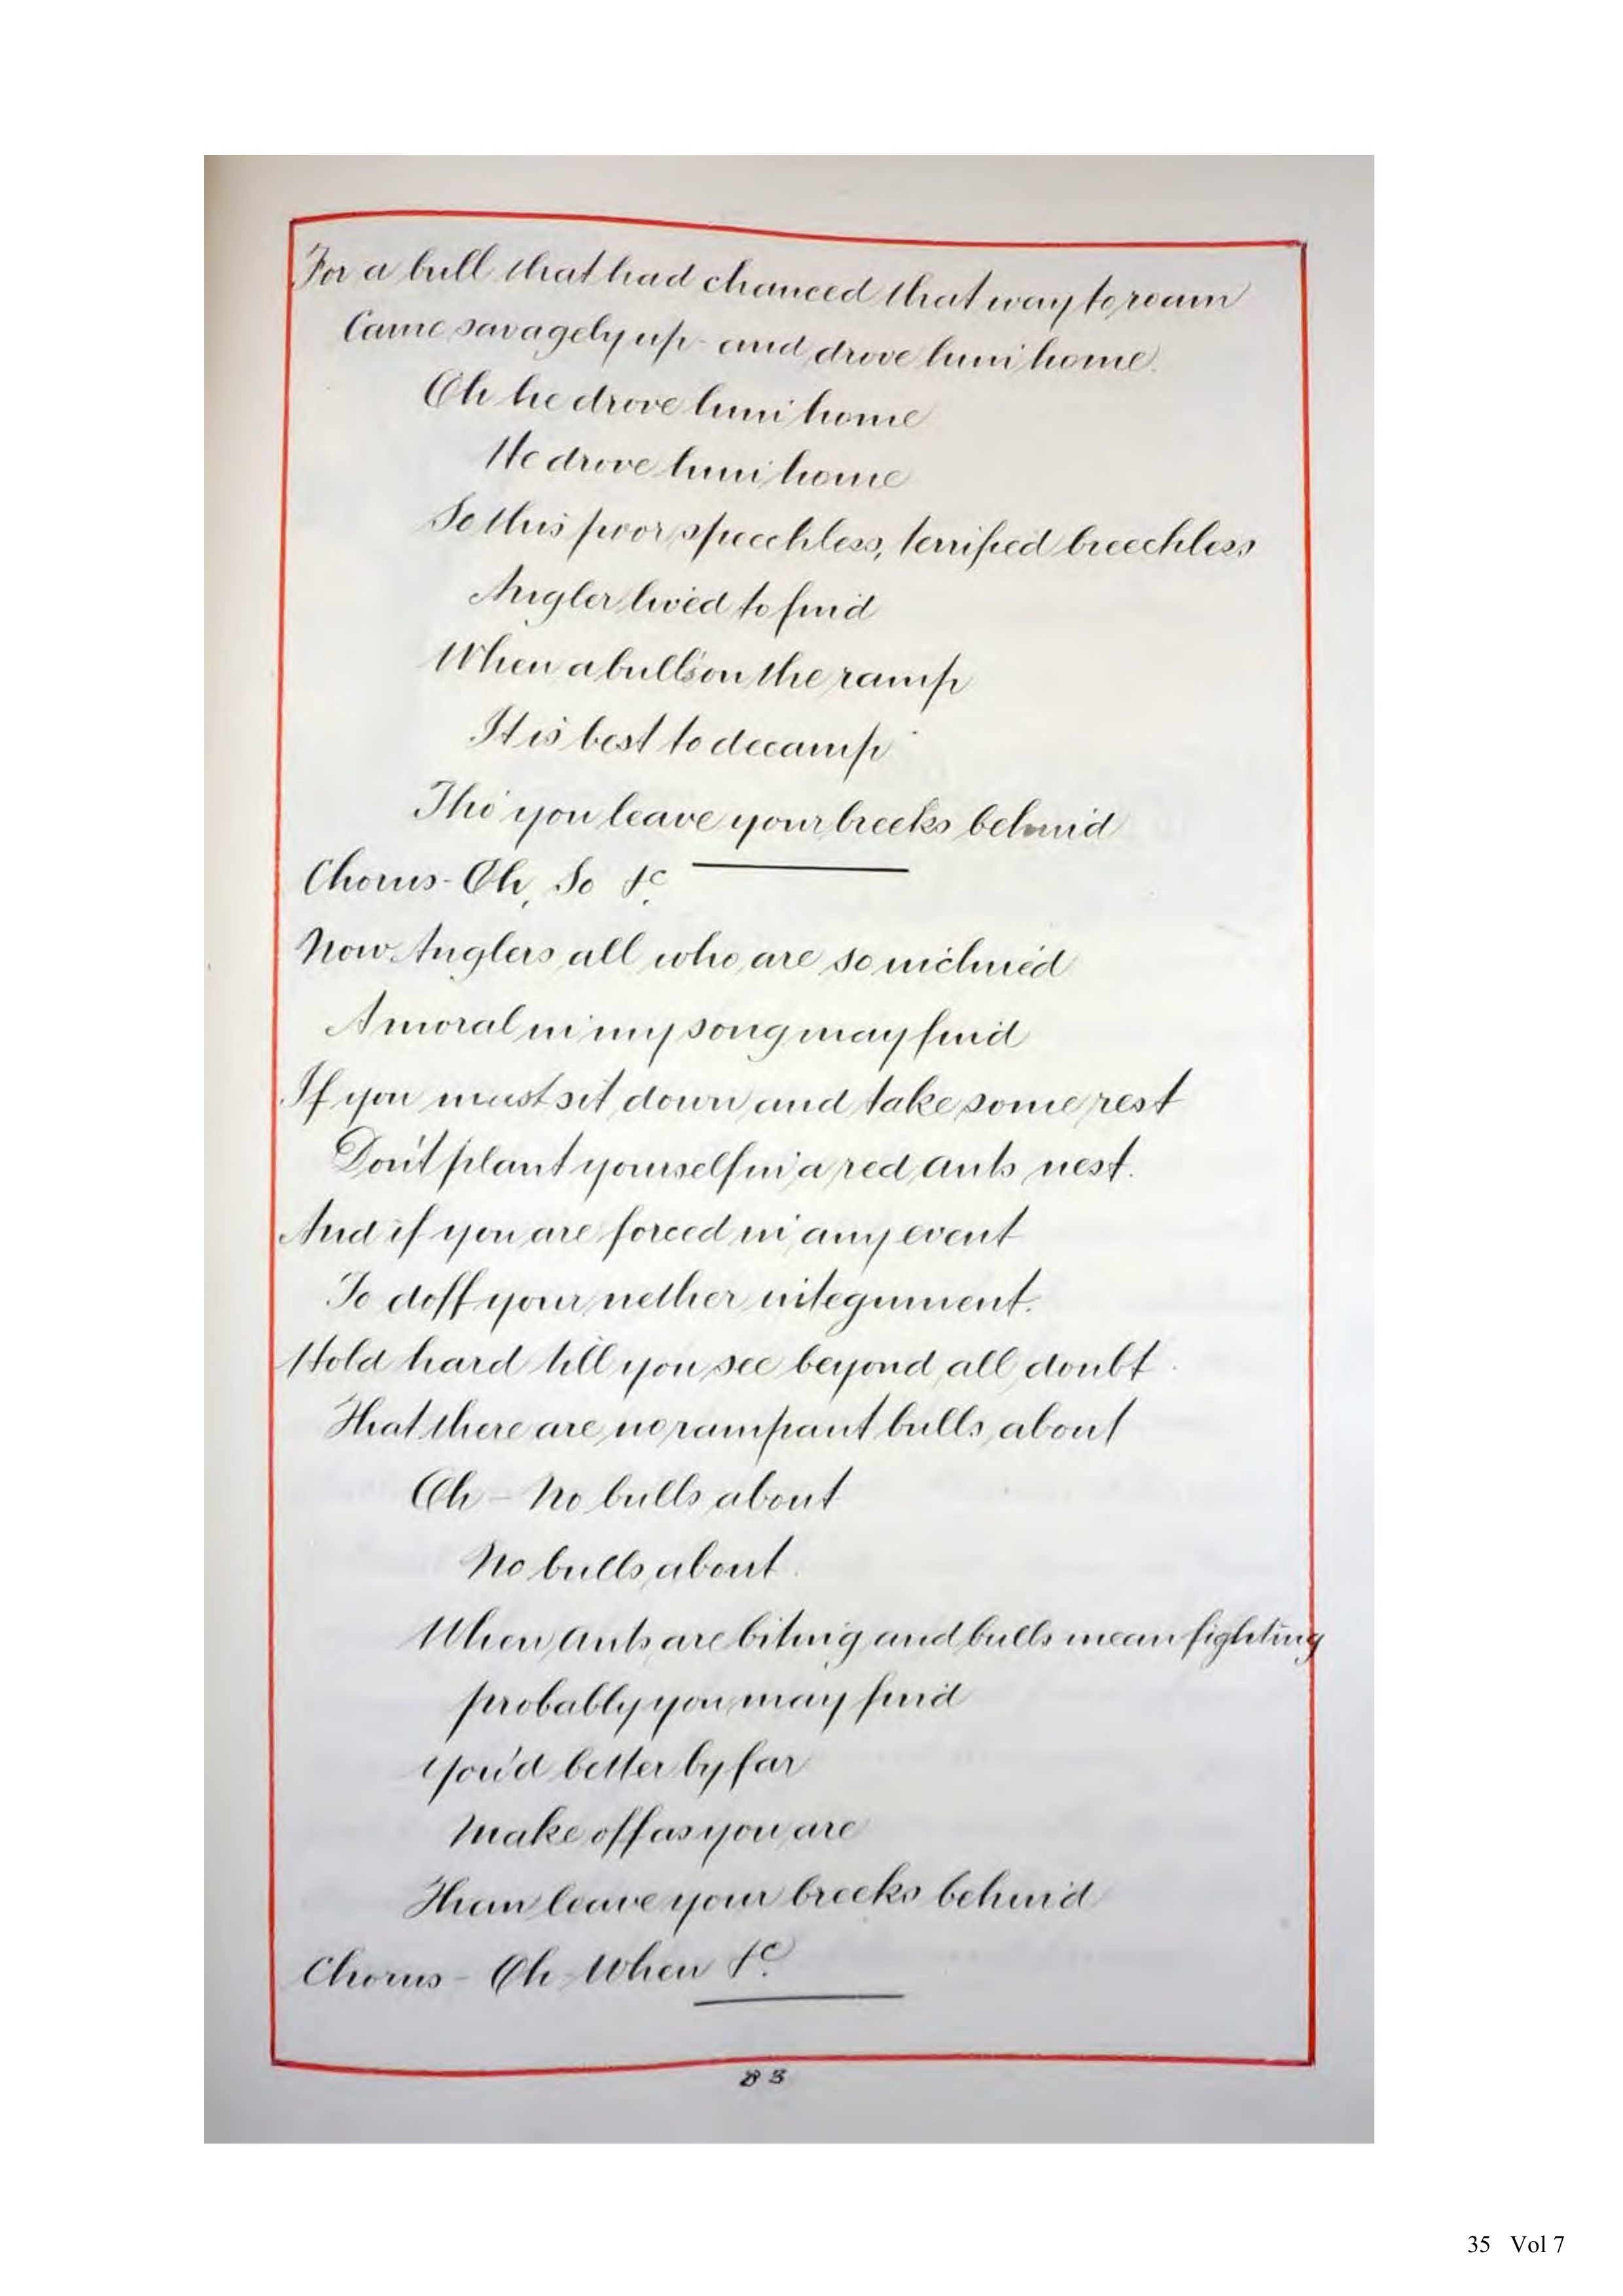 For a bull that had chanced that way to roam
Came savagely up - and drove him home.
Oh he drove him home
He drove him home
So this poor, speechless, terrified breechless
Angler lived to find
When a bull's on the ramp
It is best to decamp
Tho' you leave your breeks behind
Chorus - Oh, So &c.
Now Anglers all who are so inclined
A moral in my song may find
If you must sit down and take some rest
Don't plant yourself in a red ants nest.
And if you are forced in any event
To doff your nether integument.
Hold hard till you see beyond all doubt
That there are no rampant bulls about
Oh - No bulls about
No bulls about
When ants are biting and bulls mean fighting
probably you may find
You'd better by far
Make off as you are
Than leave your breeks behind
Chorus - Oh When &c.
83
35 Vol 7